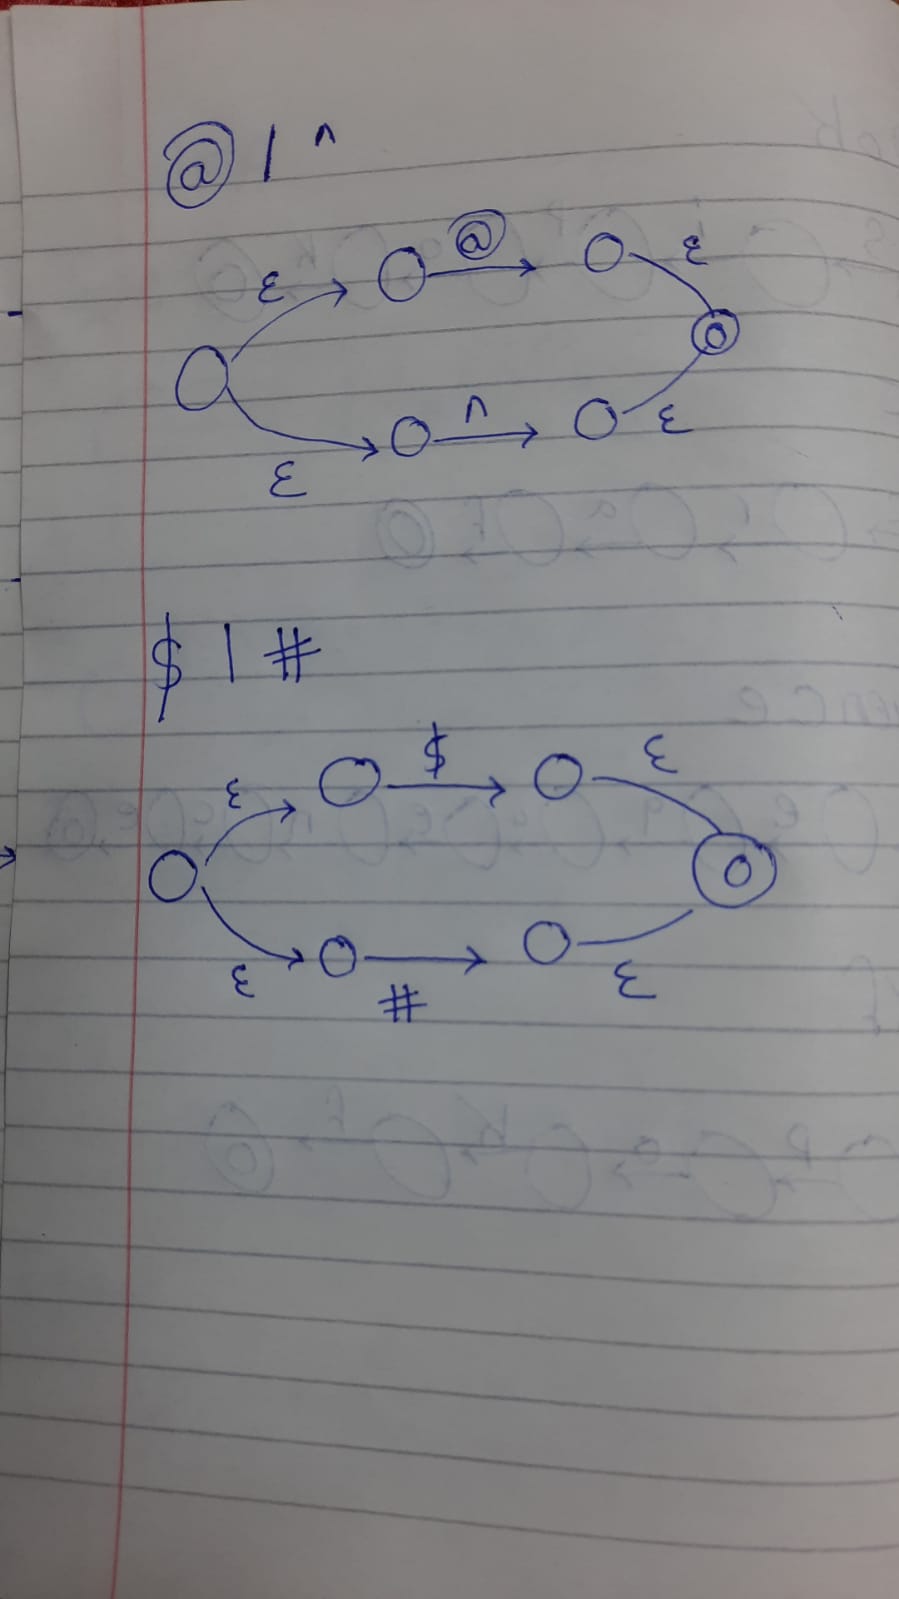 @ | ^
ε @ ε
ε ^ ε
$ | #
ε $ ε
ε # ε